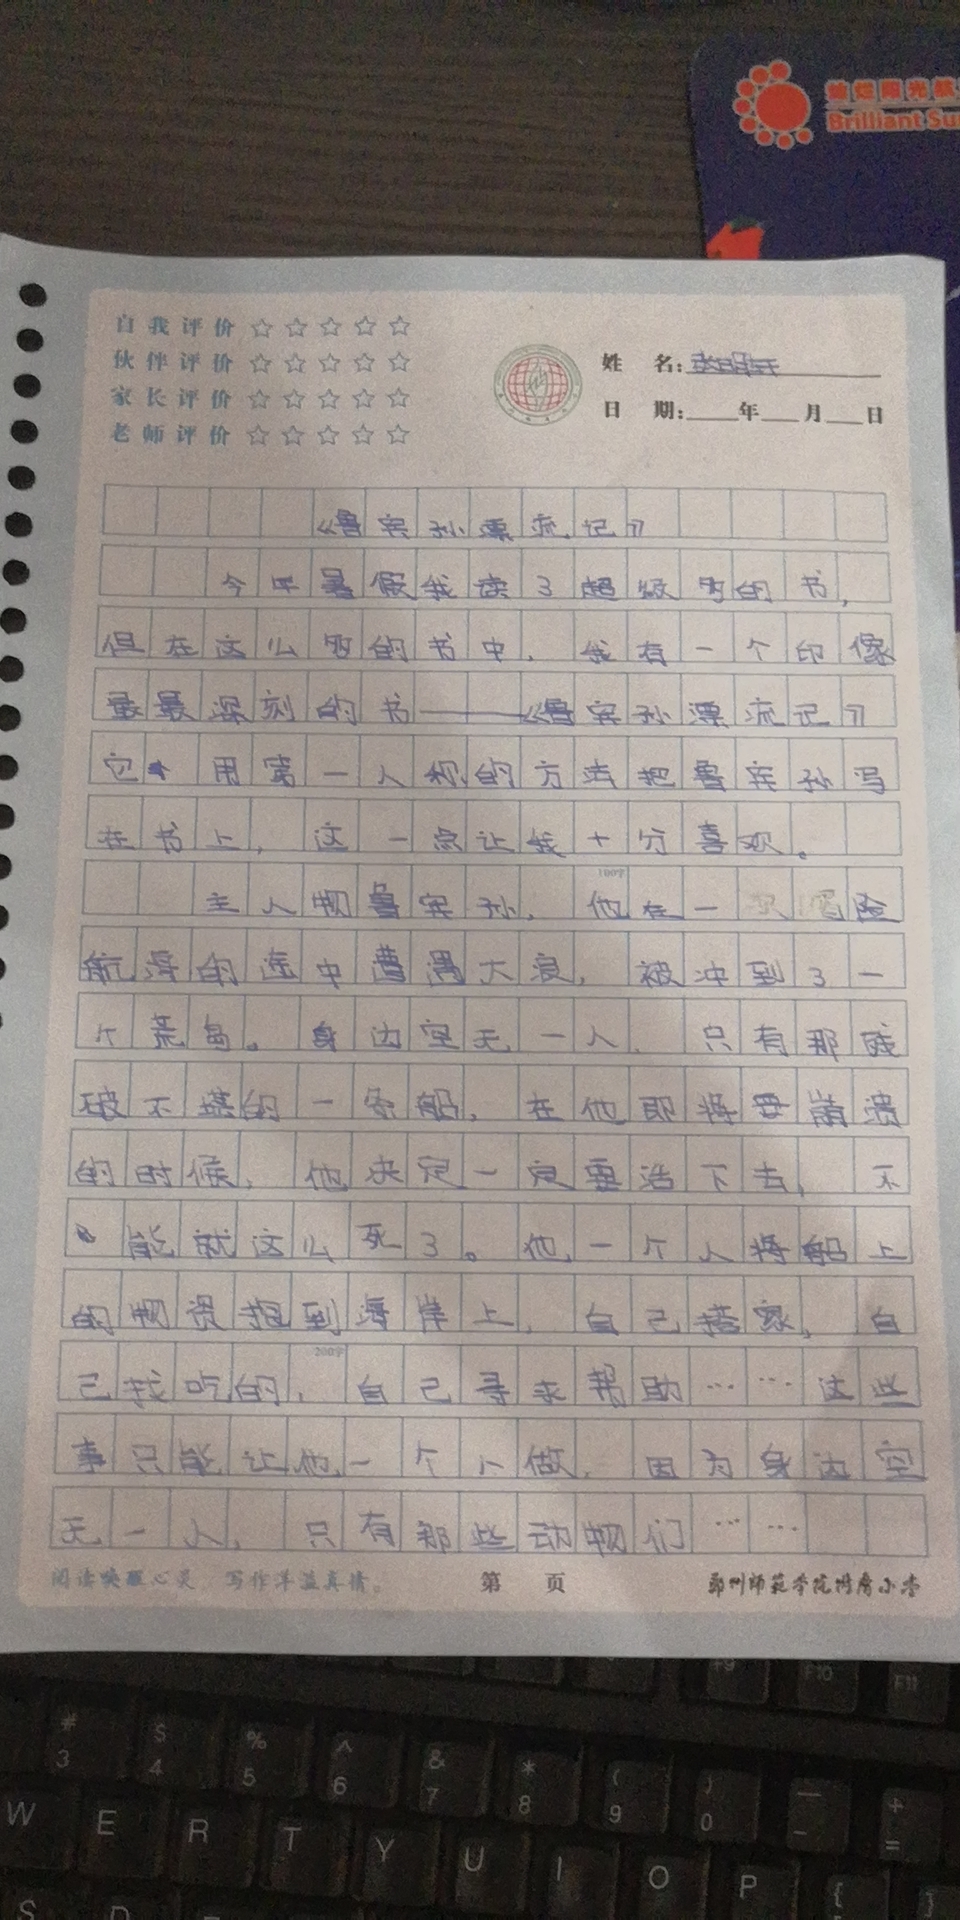 灿烂阳光航
Brilliant Su
自我评价☆☆☆☆☆
伙伴评价☆☆☆☆☆
家长评价☆☆☆☆☆
老师评价☆☆☆☆☆
姓 名:
日 期:____年___月___日
《鲁宾孙漂流记》
今年暑假我读了超级多的书,
但在这么多的书中,我有一个印像
最最深刻的书——《鲁宾孙漂流记》
它用第一人称的方法把鲁宾孙写
在书上,这一点让我十分喜欢。
100字
主人物鲁宾孙,他在一次冒险
航海的途中遭遇大浪,被冲到了一
个荒岛。身边空无一人,只有那残
破不堪的一条船,在他即将要崩溃
的时候,他决定一定要活下去,不
能就这么死了。他一个人将船上
的物资担到海岸上,自己搭家,自
200字
己找吃的,自己寻求帮助……这些
事只能让他一个人做,因为身边空
无一人,只有那些动物们……
阅读唤醒心灵 写作洋溢真情。
第 页
鄂州师范学院附属小学
F9 F10 F11
# $ % ^ & * ( ) — +
3 4 5 6 7 8 9 0 - =
W E R T Y U I O P { }
[ ]
S D